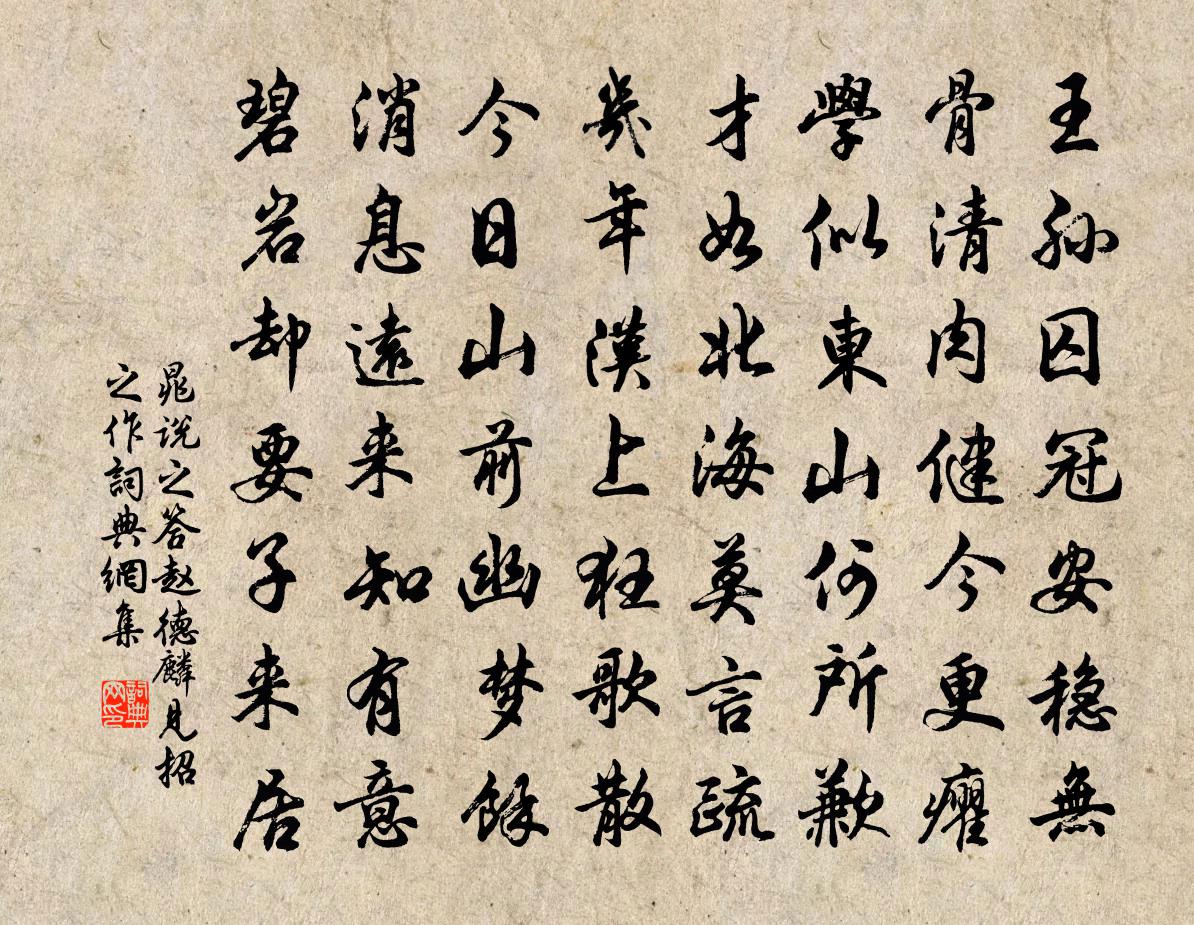 王孙囚冠安稳無
骨清肉健今更癯
學似東山何所歉
才如北海莫言疏
幾年漢上狂歌散
今日山前幽梦餘
消息遠来知有意
碧岩却要子来居
晁说之答赵德麟见招
之作詞典網集
詞典网印